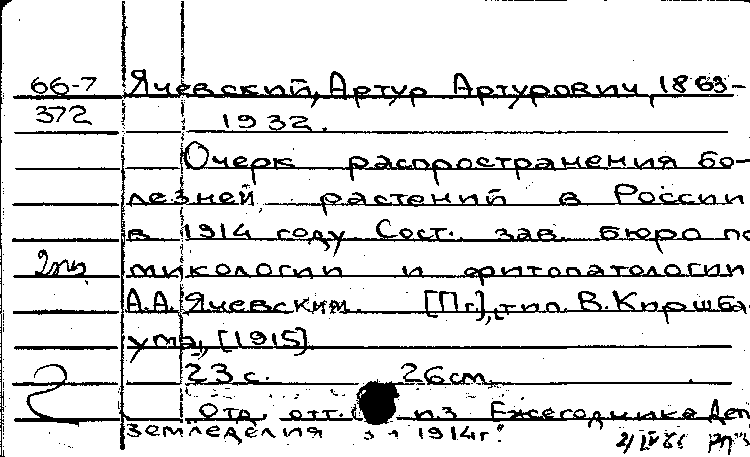 66-7 Ячевский, Артур Артурович, 1863-
372 1932.
Очерк распространения бо-
лезней растений в России
в 1914 году Сост. зав. бюро по
микологии и фитопатологии
А.А. Ячевским. [Пг], тип. В. Киршба-
ума, [1915]
23 с. 26 см.
Отд. отт. из Ежегодника Деп
земледелия 1914г."